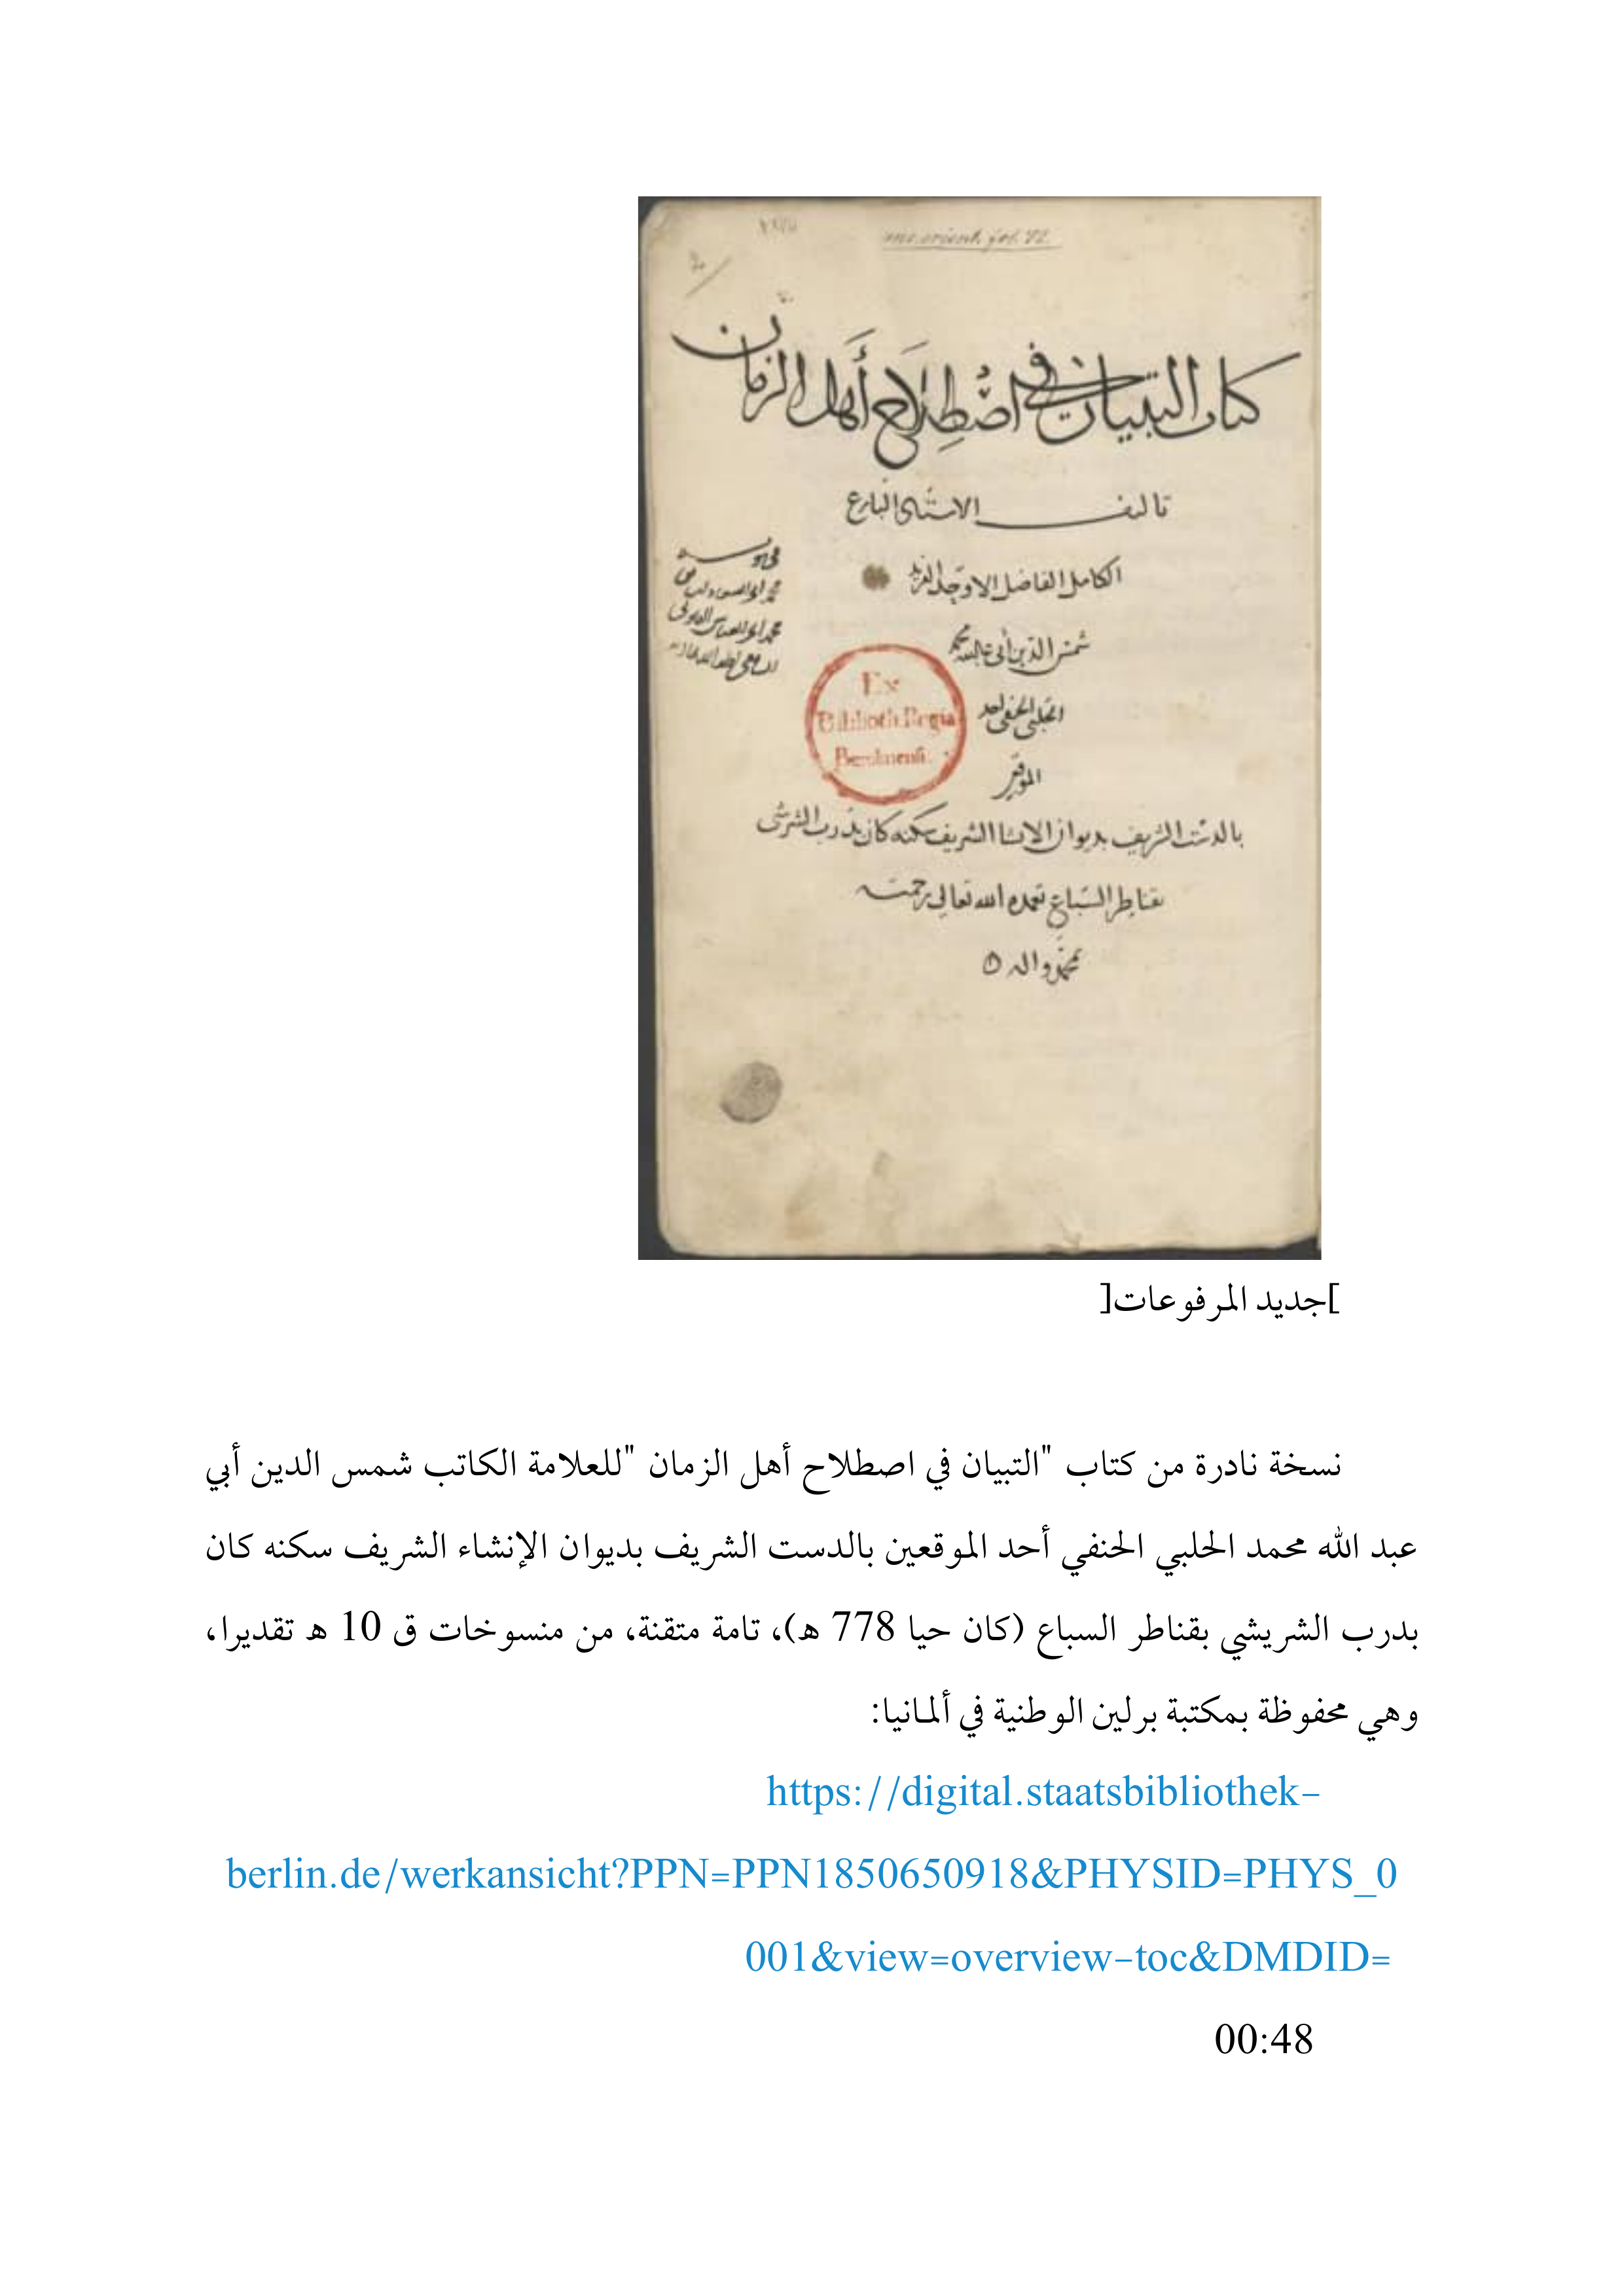 ms. orient. fol. 72.
كتاب التبيان في اصْطِلَاح أَهل الزمان
تاليف الاستاد البارع
الكامل الفاضل الاوحد الفريد
شمس الدين أبي عبد الله محمد
الحلبي الحنفي احد
Ex
Biblioth. Regia
Berolinensi.
بالدست الشريف بديوان الانشا الشريف سكنه كان بدرب الشريشي
بقناطر السباع تغمده الله تعالى برحمته
بمحمد واله
]جديد المرفوعات[
نسخة نادرة من كتاب "التبيان في اصطلاح أهل الزمان "للعلامة الكاتب شمس الدين أبي
عبد الله محمد الحلبي الحنفي أحد الموقعين بالدست الشريف بديوان الإنشاء الشريف سكنه كان
بدرب الشريشي بقناطر السباع (كان حيا 778 هـ)، تامة متقنة، من منسوخات ق 10 هـ تقديرا،
وهي محفوظة بمكتبة برلين الوطنية في ألمانيا:
https://digital.staatsbibliothek-
berlin.de/werkansicht?PPN=PPN1850650918&PHYSID=PHYS_0
001&view=overview-toc&DMDID=
00:48